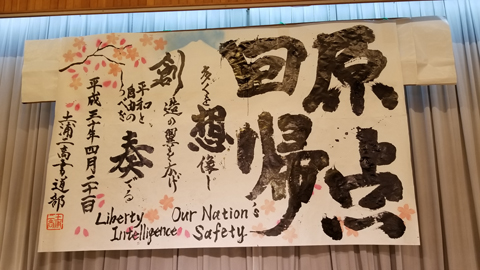 原点
回帰
多くを想像し
創造の翼を広げ
平和と
自由の
しらべを
奏でる
平成三十年四月二十一日
土浦二高書道部
Liberty
Intelligence
Our Nation's
Safety